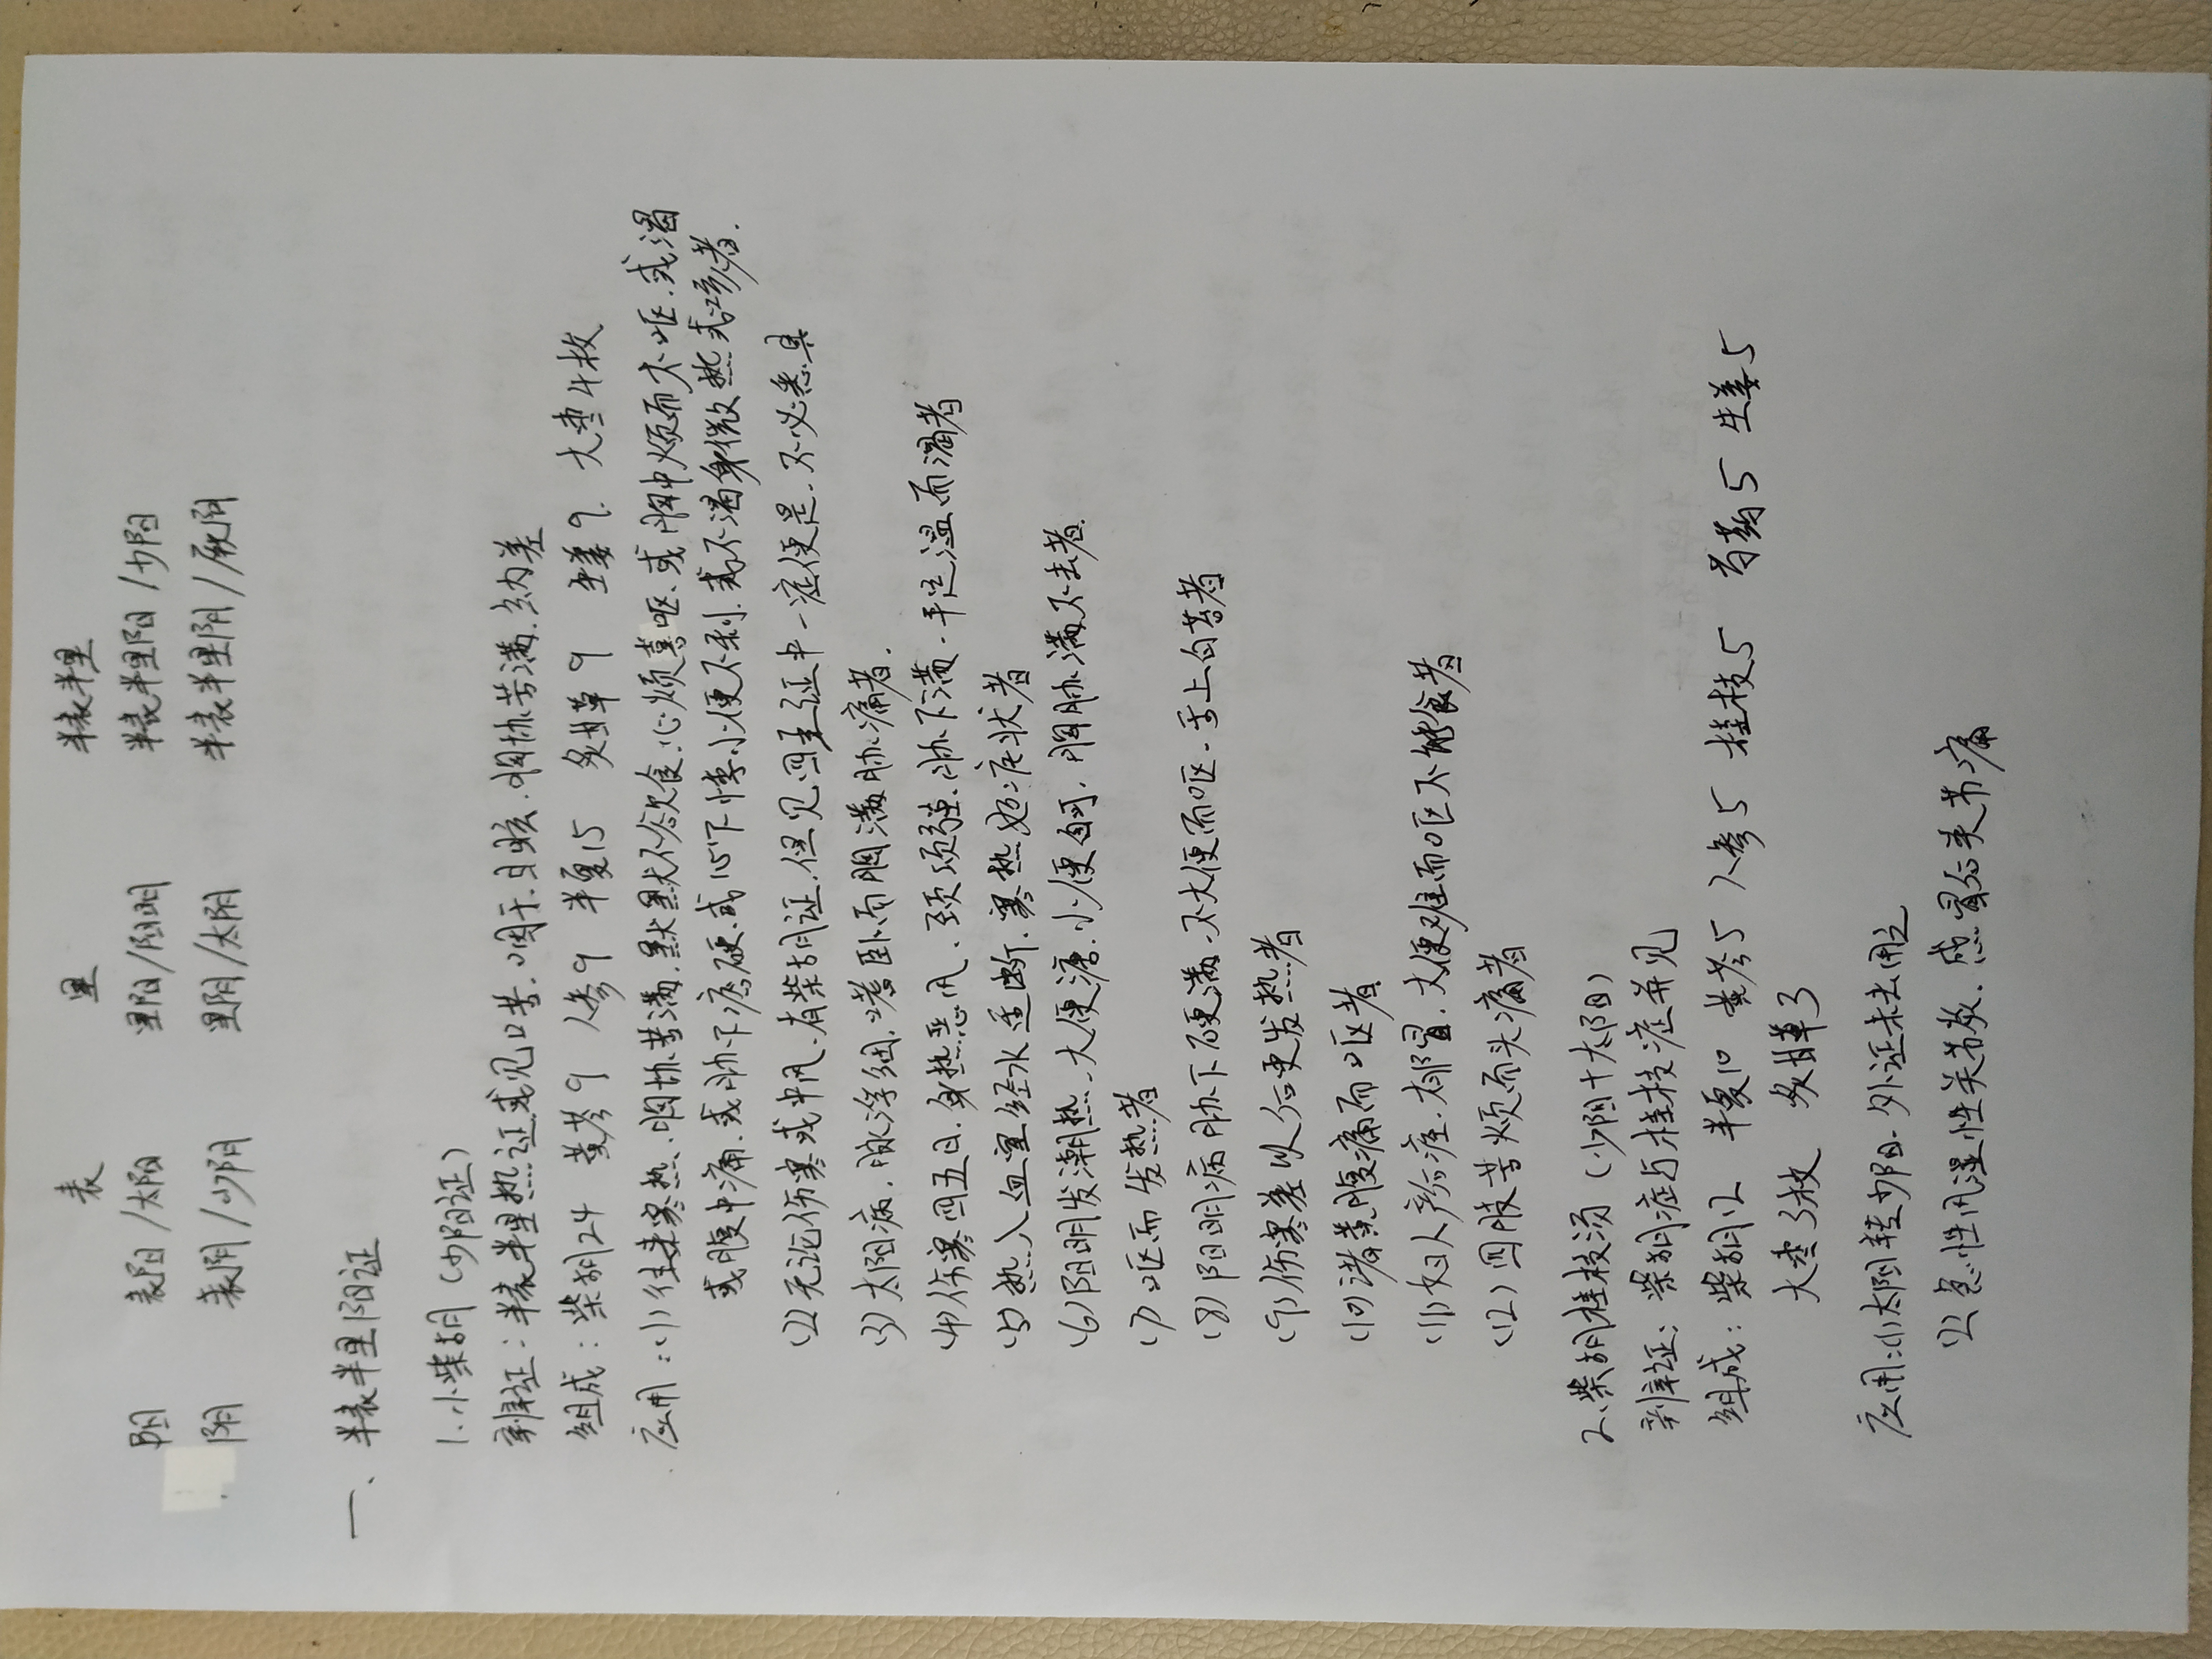 表 里 半表半里
阳 表阳/太阳 里阳/阳明 半表半里阳/少阳
阴 表阴/少阴 里阴/太阴 半表半里阴/厥阴
一、半表半里阳证
1.小柴胡(少阳证)
辨证:半表半里热证或见口苦.咽干.目眩.胸协苦满.纳差
组成:柴胡24 黄芩9 人参9 半夏15 炙甘草9 生姜9. 大枣4枚
应用:(1)往来寒热.胸协苦满.默默不欲食.心烦喜呕.或胸中烦而不呕.或渴
或腹中痛.或胁下痞硬.或心下悸.小便不利.或不渴身微热或咳者.
(2)无论伤寒或中风.有柴胡证.但见四主证中一症便是.不必悉具
(3)太阳病.脉浮细.嗜卧而胸满胁痛者.
(4)伤寒四五日.身热恶风.颈项强.胁下满.手足温而渴者
(5)热入血室经水适断.寒热如疟状者
(6)阳明发潮热.大便溏.小便自可.胸胁满不去者
(7)呕而发热者
(8)阳明病胁下硬满.不大便而呕.舌上白苔者
(9)伤寒差以后更发热者
(10)诸黄腹痛而呕者
(11)妇人产后痉.郁冒.大便难而呕不能食者
(12)四肢苦烦而头痛者
2.柴胡桂枝汤(少阳+太阳)
辨证:柴胡症与桂枝症并见
组成:柴胡12 半夏10 黄芩5 人参5 桂枝5 芍药5 生姜5
大枣3枚 炙甘草3
应用:(1)太阳转少阳.外证未去用之
(2)急性风湿性关节炎.感冒后关节痛